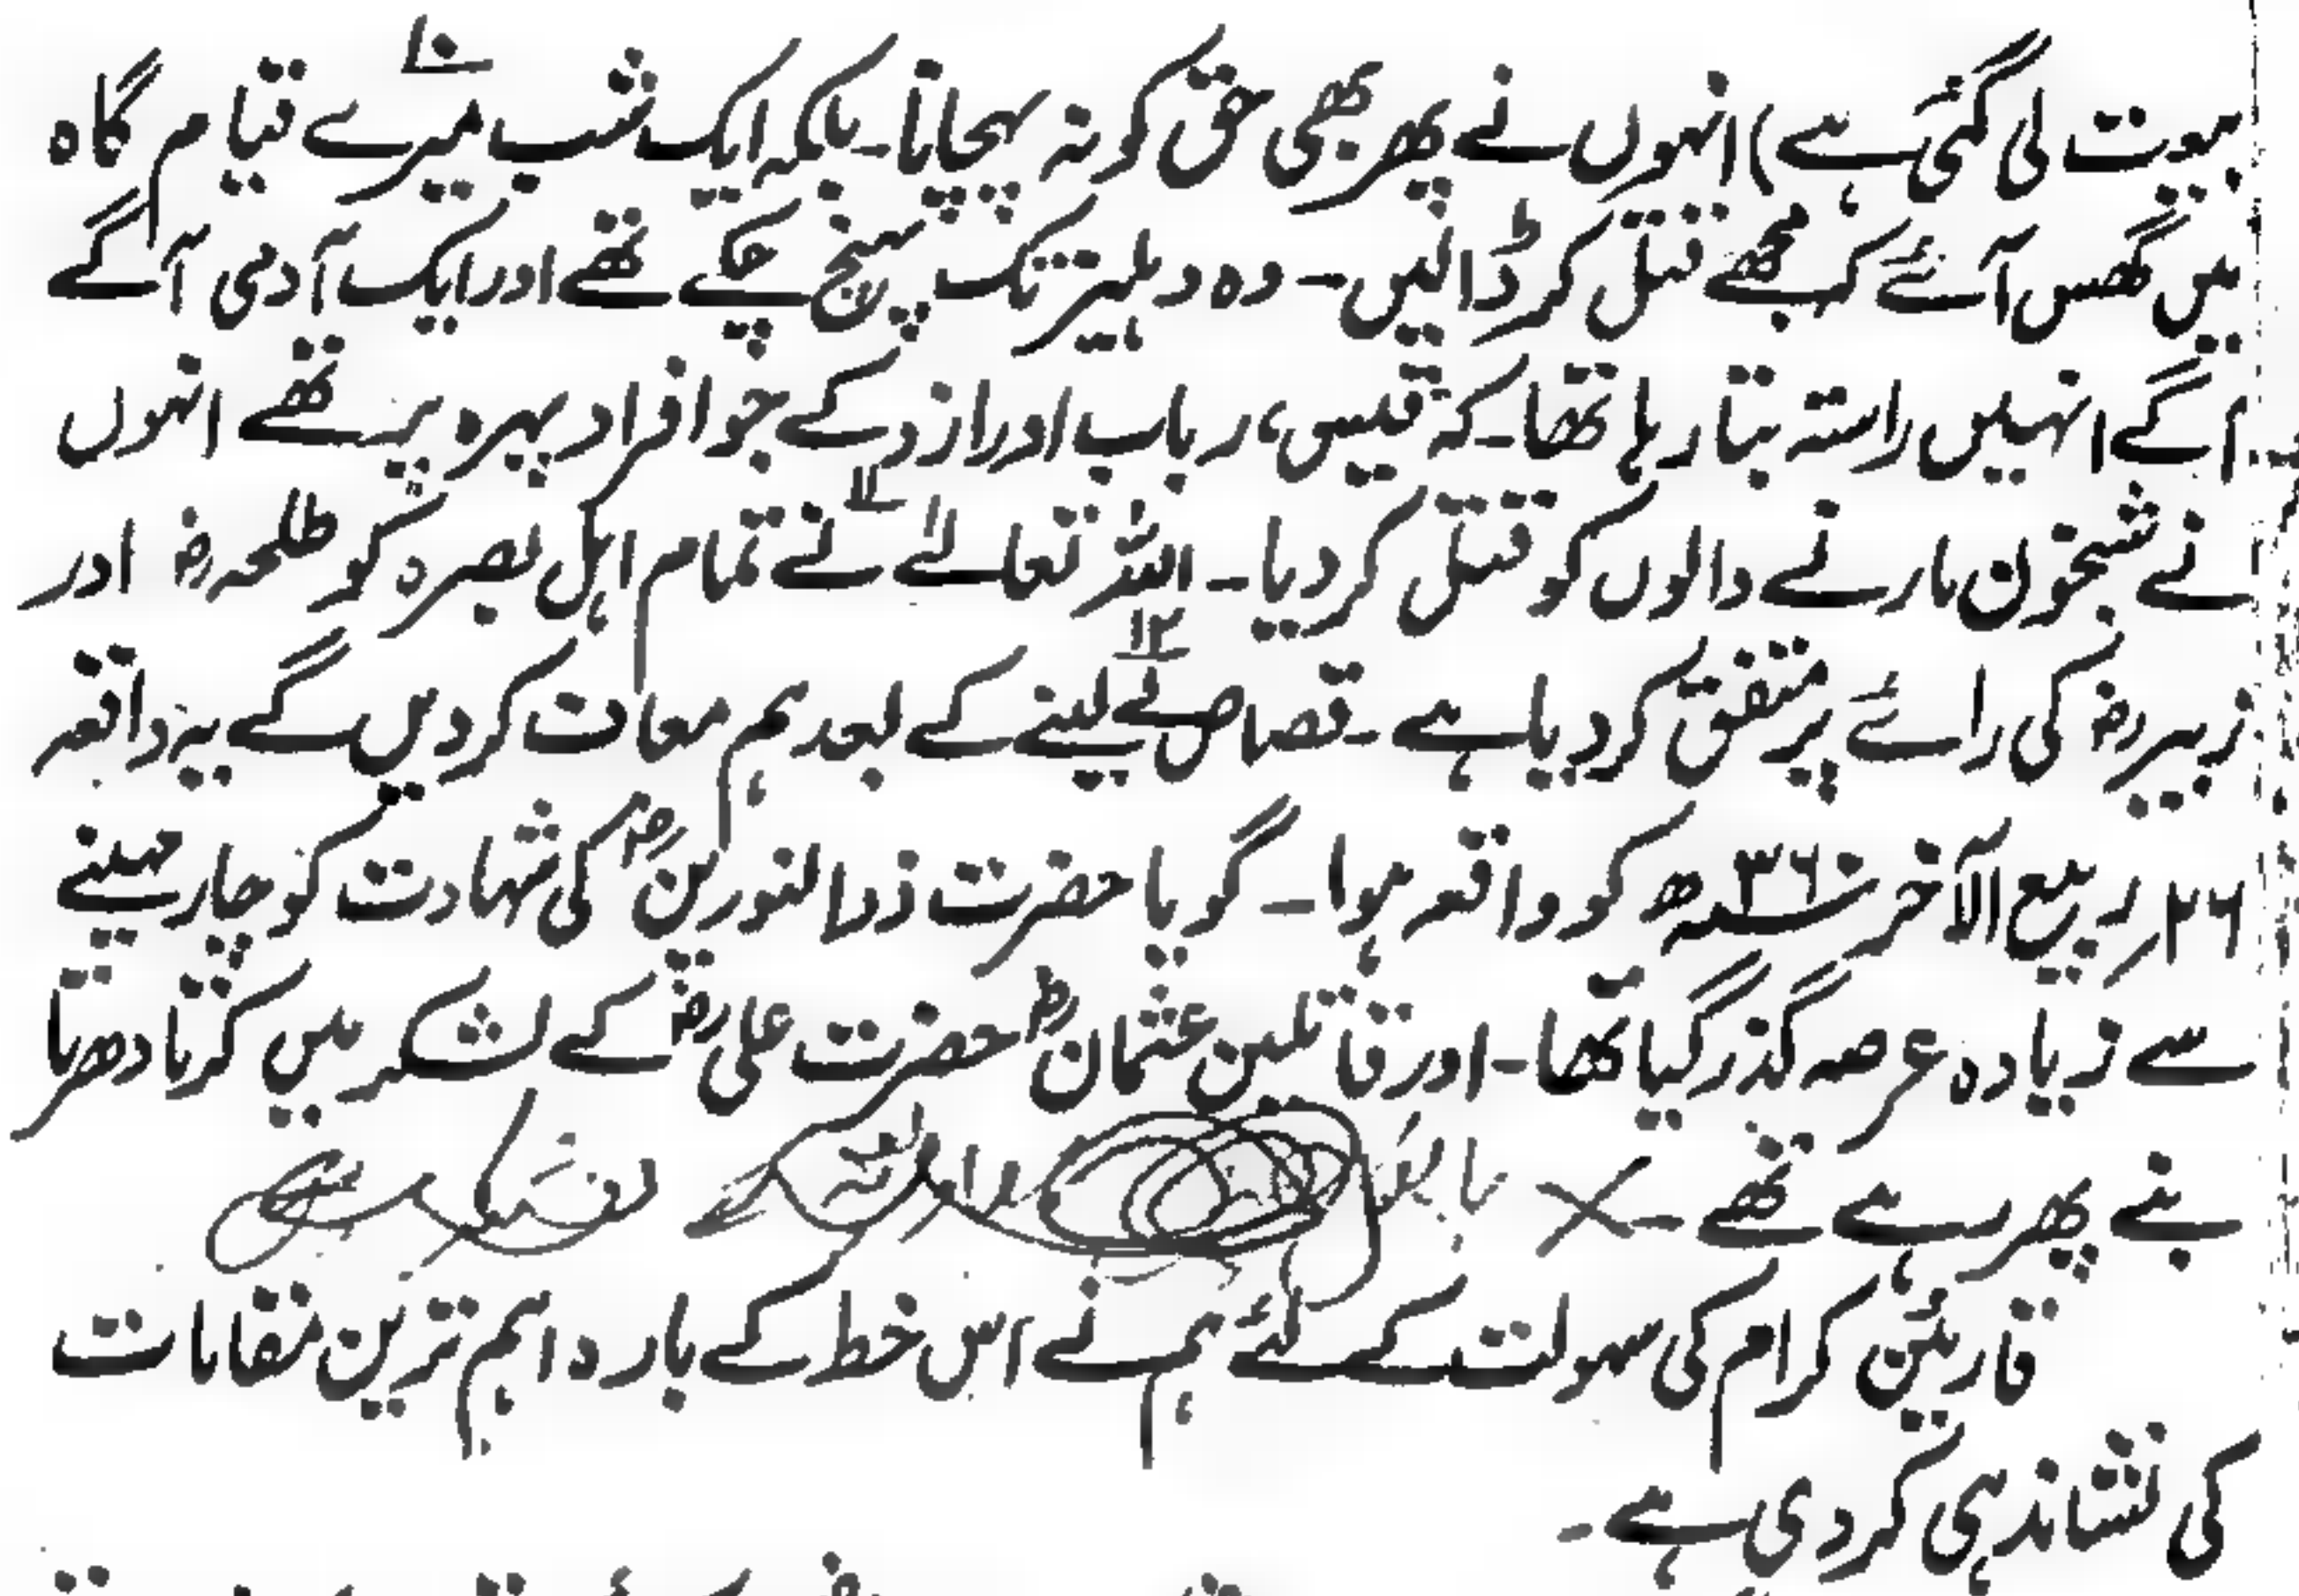 بیعت لی گئی ہے) انہوں نے پھر بھی حق کو نہ پہچانا۔ بلکہ ایک شب ۱۰ میرے قیام گاہ
میں گھس آئے کہ مجھے قتل کر ڈالیں۔ وہ دہلیز تک پہنچ چکے تھے اور ایک آدمی آگے
آگے انہیں راستہ بتا رہا تھا۔ کہ قیس، رباب اور ازد کے جو افراد پہرہ پر تھے انہوں
نے شبخون مارنے والوں کو قتل کر دیا۔ اللہ تعالےٰ ۱۱ نے تمام اہل بصرہ کو طلحہ رض اور
زبیر رض کی رائے پر متفق کر دیا ہے۔ قصاص ۱۲ لے لینے کے بعد ہم معاف کر دیں گے یہ واقعہ
۲۶ ربیع الآخر ۳۶ھ کو واقعہ ہوا۔ گویا حضرت ذوالنورین رض کی شہادت کو چار مہینے
سے زیادہ عرصہ گذر گیا تھا۔ اور قاتلین عثمان رض حضرت علی رض کے لشکر میں کرتا دھرتا
بنے پھر رہے تھے۔
قارئین کرام کی سہولت کے لئے ہم نے اس خط کے بارہ اہم ترین مقامات
کی نشاندہی کر دی ہے۔